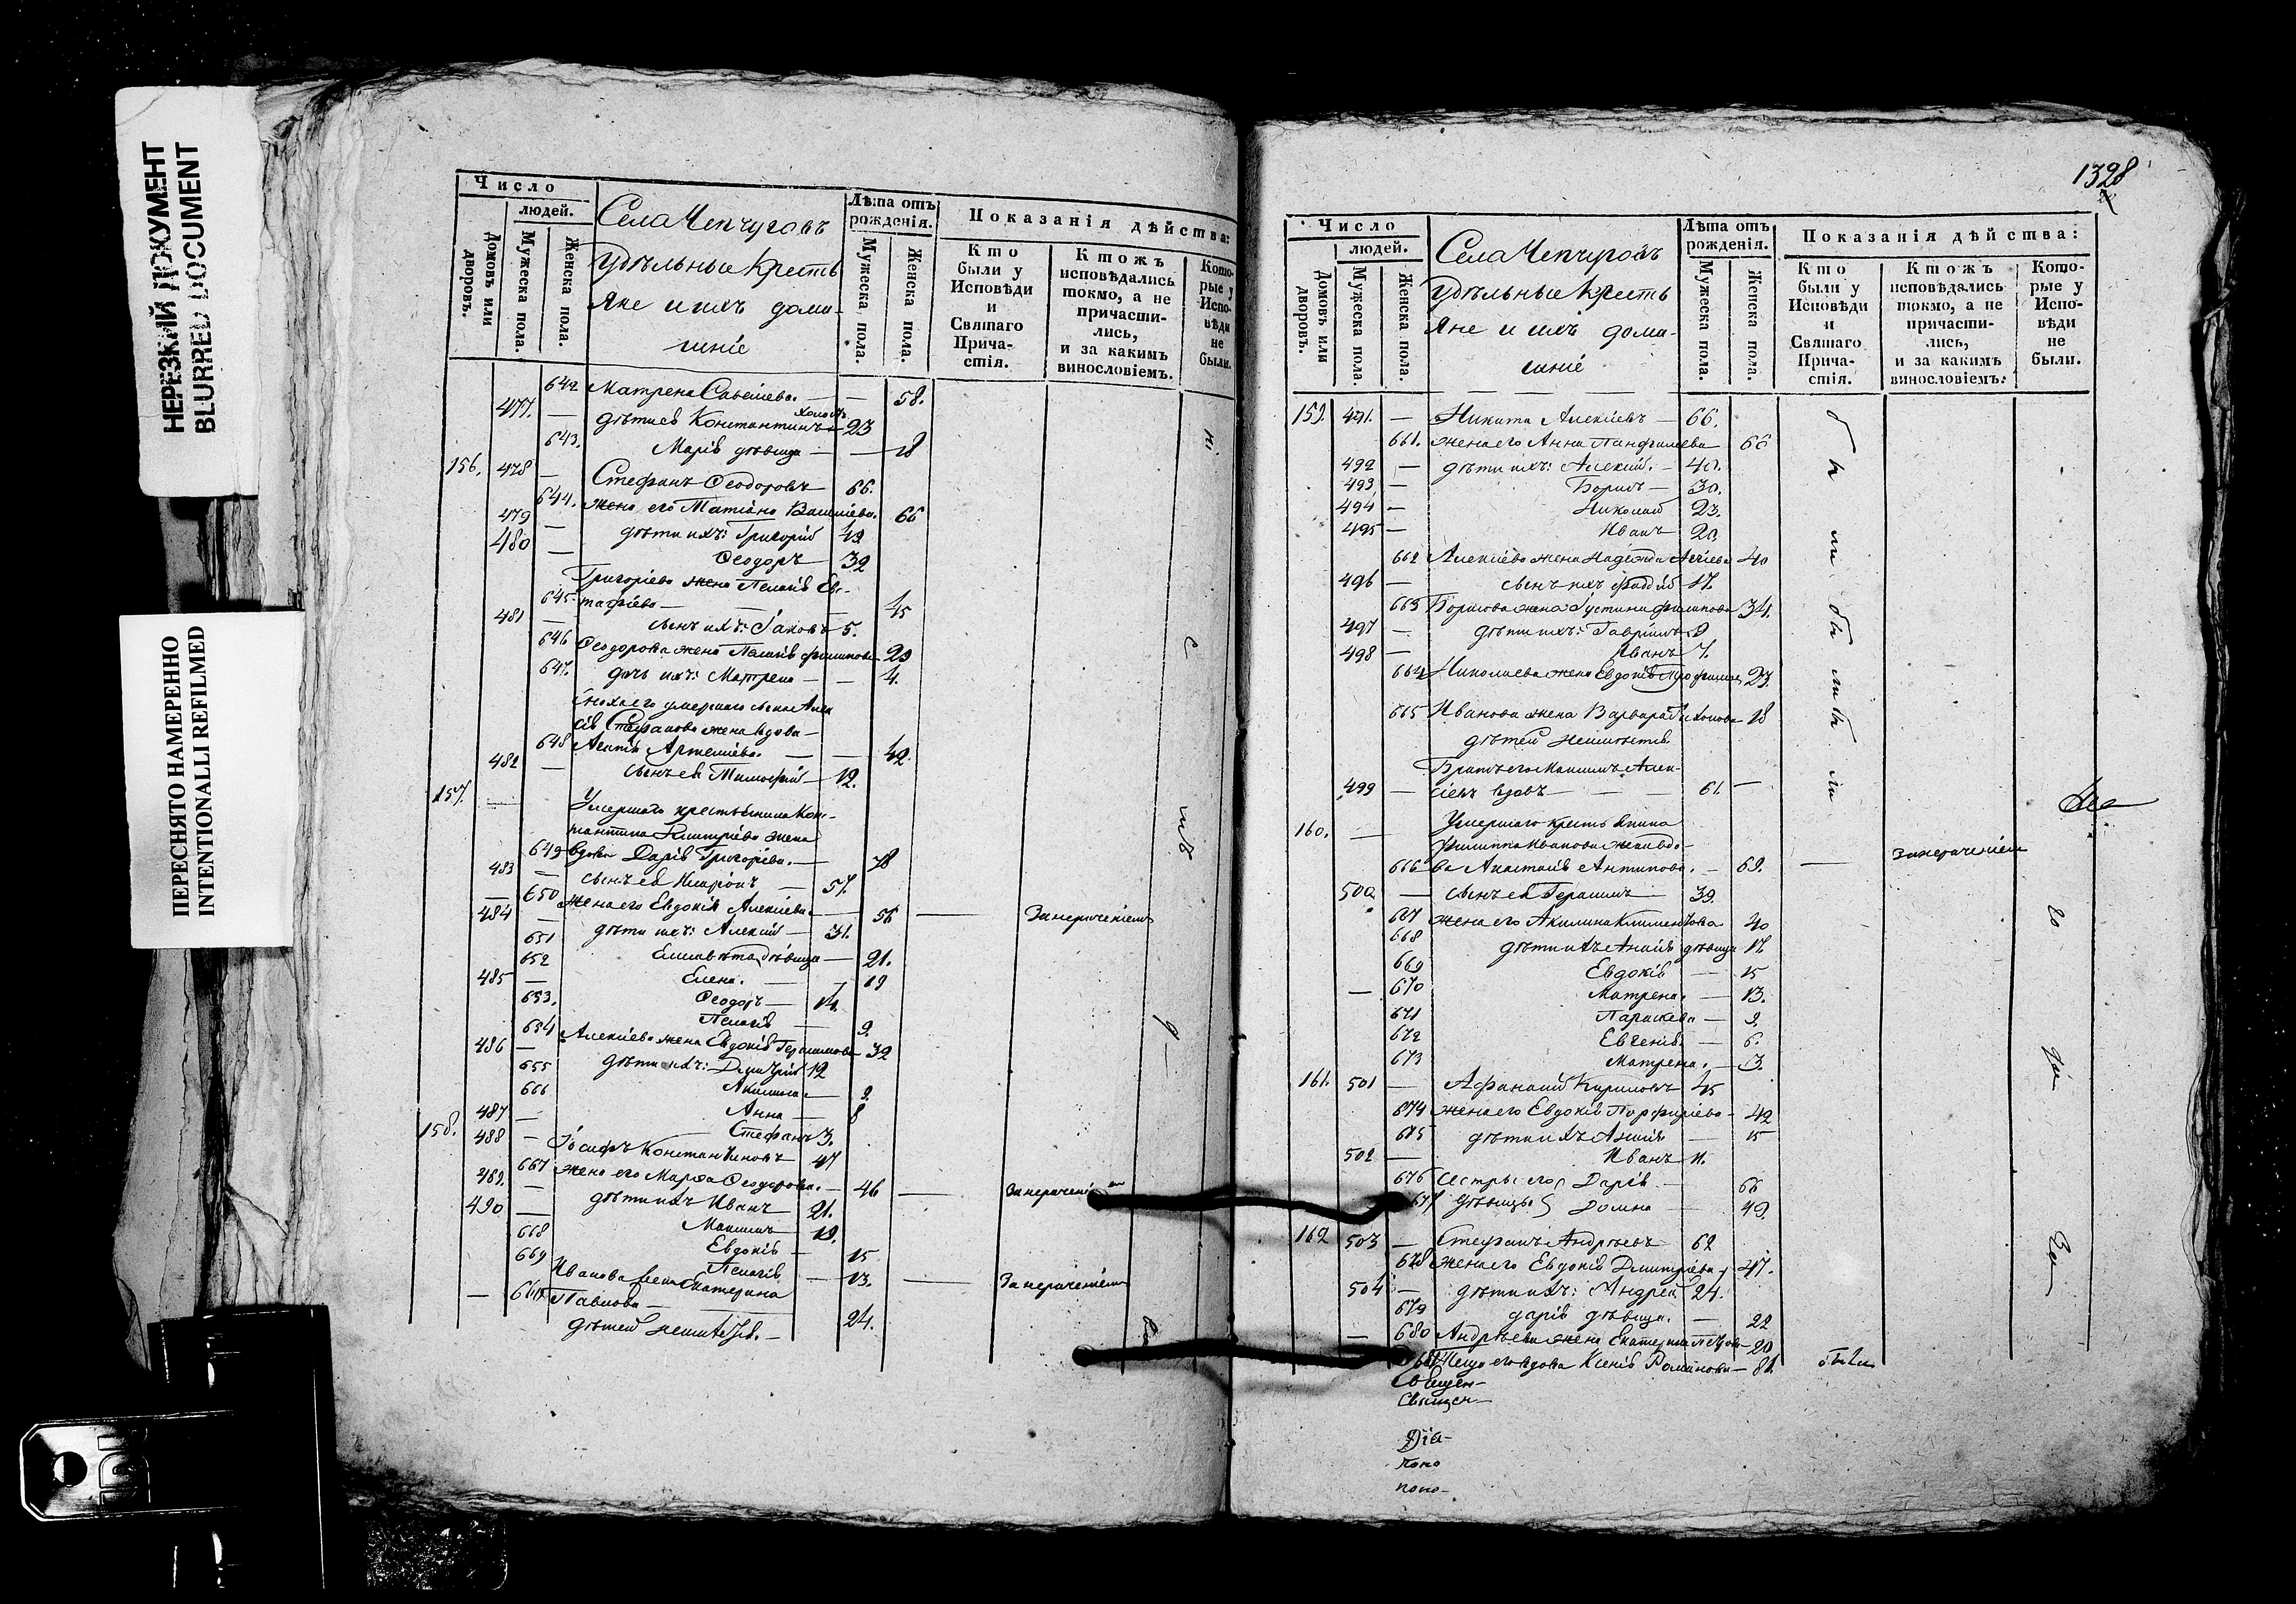 НЕРЕЗКИЙ ДОКУМЕНТ
BLURRED DOCUMENT
ПЕРЕСНЯТО НАМЕРЕННО
INTENTIONALLI REFILMED
Число
людей.
Домовъ или дворовъ.
Мужеска пола.
Женска пола.
Села Чепчуговъ
Удѣльные Кресть
яне и ихъ дома-
шніе
Лѣта отъ рожденія.
Мужеска пола.
Женска пола.
Показанія дѣйства:
Кто были у Исповѣди и Святаго Прича-стія.
Ктожъ исповѣдались токмо, а не причасти-лись, и за какимъ винословіемъ.
Кото-рые у Испо-вѣди не были.
642 Матрена Савеліева. — — 58.
477. — дѣти ея Константинъ холостъ 23
643. Марія дѣвица — — 18
156. 478 — Стефанъ Ѳеодоровъ 66.
644. жена его Татіана Василіева. 66
479 — дѣти ихъ: Григорій 43
480 — Ѳеодоръ 32
Григоріева жена Пелагія Ев-
645 стафіева — 45
481 — сынъ ихъ: Іаковъ 5.
646 Ѳеодорова жена Пелагія Филипова 29
647. дочь ихъ: Матрена — — 4.
Сноха его умершаго сына Алек
сія Стефанова жена вдова —
648 Агапія Артеміева. — — 42.
482 — сынъ ея Тимоѳей 12.
157. — Умершаго крестьянина Кон-
стантина Димитріева жена
649 вдова Дарія Григоріева. — 78
483 — сынъ ея Иларіонъ — 57.
650 жена его Евдокія Алексіева — 56 — За нераченіемъ
484 — дѣти ихъ: Алексій — 31.
651 Елисавета дѣвица — 21.
652 Елена. — 19
485 — Ѳеодоръ — 14.
653. Пелагія — 9.
654 Алексіева жена Евдокія Герасимова 32
486 — дѣти ихъ: Димитрій 12
655 Акилина — 9.
666 Анна — 8
487 — Стефанъ 3.
158. 488 — Іосифъ Константиновъ 47
667 жена его Марѳа Ѳеодорова. — 46 — За нераченіемъ
489. — дѣти ихъ Иванъ 21.
490 — Максимъ 19.
668 Евдокія — 15
669 Пелагія — 13. — За нераченіемъ
Иванова жена Екатерина
— 660 Павлова — 24.
дѣтей неимѣетъ. —
1328
Число
людей.
Домовъ или дворовъ.
Мужеска пола.
Женска пола.
Села Чепчуговъ
Удѣльные Кресть
яне и ихъ дома-
шніе
Лѣта отъ рожденія.
Мужеска пола.
Женска пола.
Показанія дѣйства:
Кто были у Исповѣди и Святаго Прича-стія.
Ктожъ исповѣдались токмо, а не причасти-лись, и за какимъ винословіемъ.
Кото-рые у Испо-вѣди не были.
159. 491. — Никита Алексіевъ — 66.
661. жена его Анна Панфилова 66
492 — дѣти ихъ: Алексій. — 40.
493 — Борисъ — 30.
494 — Николай 23.
495 — Иванъ 20.
662 Алексіева жена Надежда 40
496 — сынъ ихъ Фаддей 17.
663 Борисова жена Іустина Филипова 34.
497 — дѣти ихъ: Гавріилъ 9
498 — Иванъ 7.
664 Николаева жена Евдокія 23.
665 Иванова жена Варвара 18
дѣтей неимѣетъ
Братъ его Максимъ Алек-
499 — сіевъ вдовъ — — 61. —
160. — Умершаго крестьянина
Филиппа Иванова жена вдо-
666 ва Анастасія Антипова. — 69. — За нераченіемъ
500. — сынъ ея Герасимъ 39.
667 жена его Акилина Климентова 40
668 дѣти ихъ Анисія дѣвица 17.
669 Евдокія — 15
— 670 Матрена. — 13.
671 Параскева — 9.
672 Евгенія. — 6.
673 Матрена. — 3.
161. 501 — Афанасій Кириловъ 45
674 жена его Евдокія Порфиріева — 42
675 дѣти ихъ Анисія — 15
502 — Иванъ 11.
676 Сестры его Дарія — 66
677 дѣвицы Домна — 49.
162 503 — Стефанъ Андреевъ 62
678 жена его Евдокія Димитріева 47.
504 — дѣти ихъ: Андрей 24.
679 Дарія дѣвица. — 22
— 680 Андреева жена Екатерина 20
681 Теща его вдова Ксенія Романова — 81. были
Священ-
Священ-
Діа-
поно
поно-